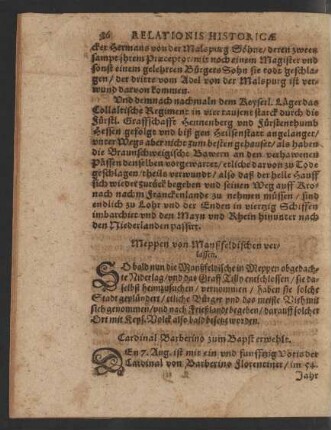 86 RELATIONIS HISTORICÆ
cker Hermans von der Malspurg Söhne / deren zween
sampt jhrem Præceptor mit noch einem Magister vnd
sonst einem gelehrten Bürgers Sohn sie todt geschla-
gen / der dritte vom Adel von der Malspurg ist ver-
wund darvon kommen.
Vnd demnach nachmaln dem Keyserl. Läger das
Collaltische Regiment in vier tausend starck durch die
Fürstl. Graffschafft Hennenberg vnd Fürstenthumb
Hessen gefolgt vnd biß gen Heilsenstatt angelanget /
unter Wegs aber nicht zum besten gehauset / als haben
die Braunschweigische Bawren an den verhawenen
Pässen denselben vorgewartet / etliche darvon zu Tode
geschlagen / theils verwundt / also daß der helle Hauff
sich wieder zurück begeben vnd seinen Weg auff Kro-
nach nach im Franckenlandt zu nehmen müssen / sind
endlich zu Lohr vnd der Enden in viertzig Schiffen
imbarchirt vnd den Mayn vnd Rhein hinunter nach
den Niederlanden passirt.
Meppen von Manßfeldischen ver-
lassen.
SO bald nun die Manßfeldische in Meppen obgedach-
te Niderlag / vnd das Graff Tilly entschlossen / sie da-
selbst heimzusuchen / vernommen / haben sie solche
Stadt geplündert / etliche Bürger vnd das meiste Vieh mit
sich genommen / vnd nach Frießlandt begeben / darauff solcher
Ort mit Keys. Volck also bald besetzt worden.
Cardinal Barberino zum Bapst erwehlt.
DEn 7. Aug. ist mit ein vnd fünffzig Votis der
Cardinal von Barberino Florentiner / im 54.
Jahr